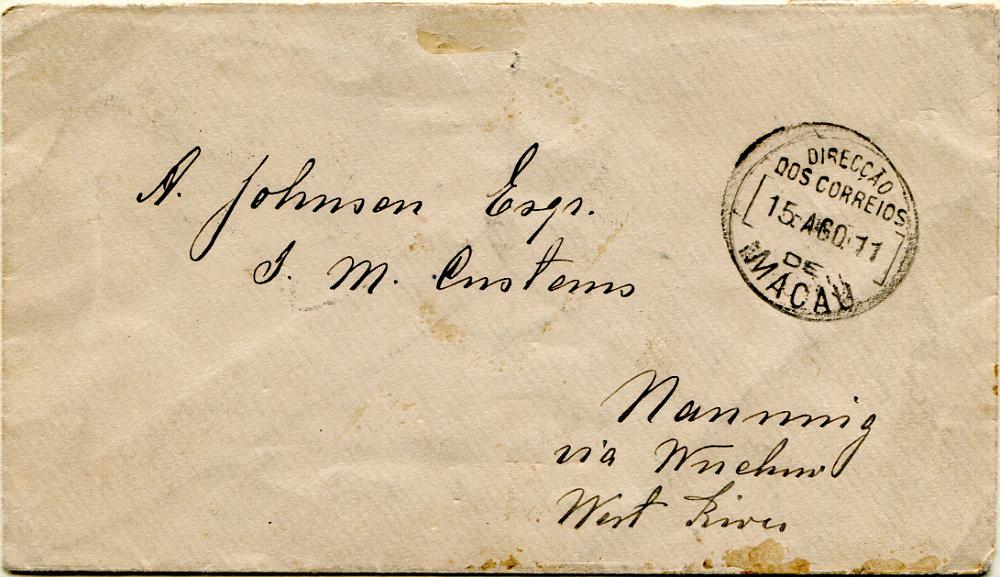 A. Johnson Esqr.
I. M. Customs
Nanning
via Wuchow
West River
DIRECÇÃO
DOS CORREIOS
15 AGO. 11
DE
MACAU